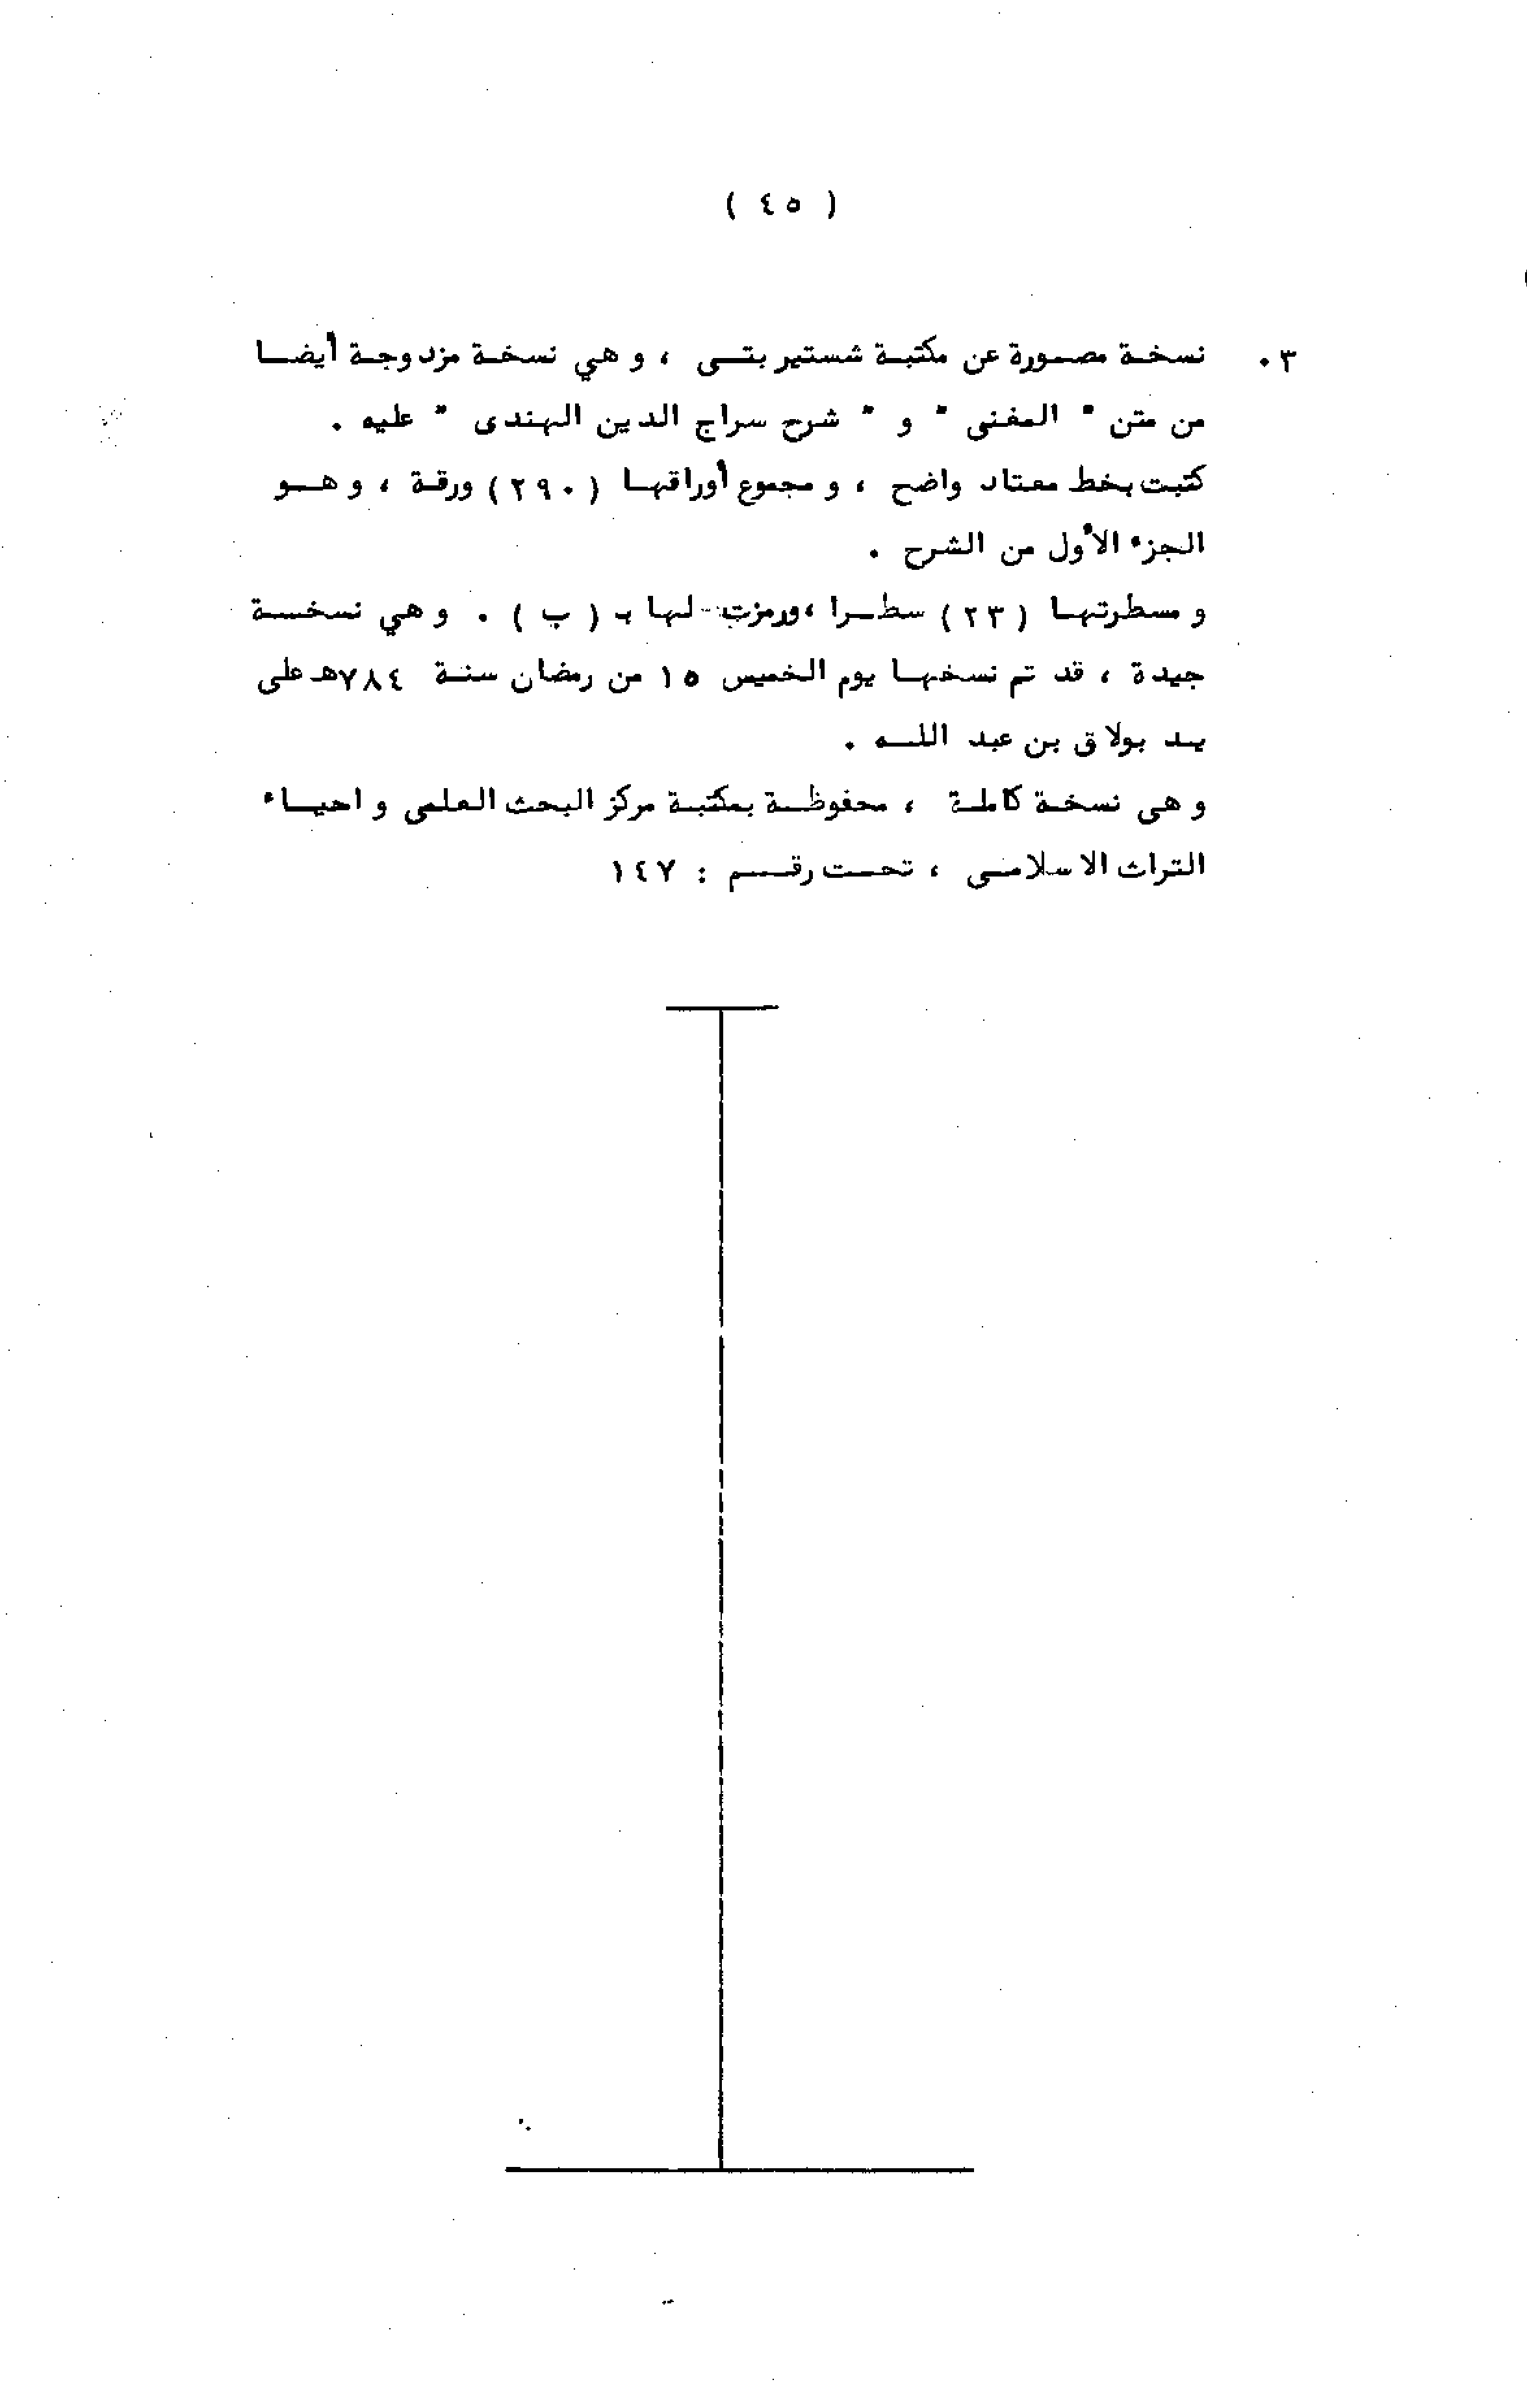 ( ٤٥ )
٣. نسخة مصورة عن مكتبة شستير بتى ، و هي نسخة مزدوجة أيضا
من متن " المغنى " و " شرح سراج الدين الهندى " عليه .
كتبت بخط معتاد واضح ، و مجموع أوراقها ( ٢٩٠ ) ورقة ، و هو
الجزء الأول من الشرح .
و مسطرتها ( ٢٣ ) سطرا ، ورمزت لها بـ ( ب ) . و هي نسخة
جيدة ، قد تم نسخها يوم الخميس ١٥ من رمضان سنة ٧٨٤هـ على
يد بولاق بن عبد الله .
و هى نسخة كاملة ، محفوظة بمكتبة مركز البحث العلمى و احياء
التراث الاسلامى ، تحت رقم : ١٤٧